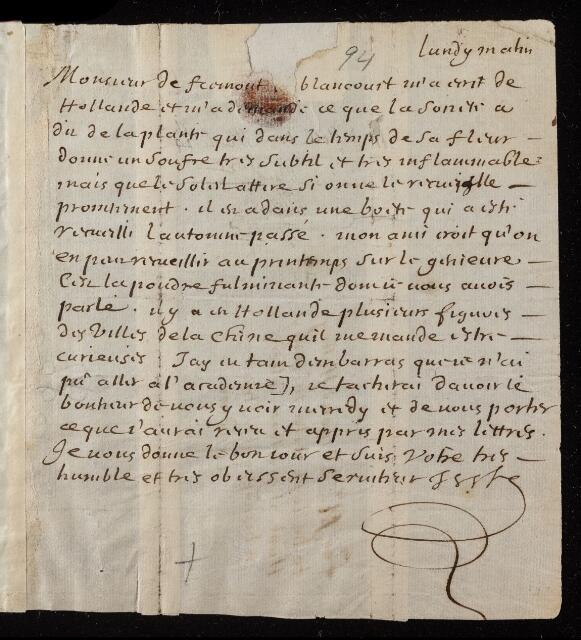 94 lundy matin
Monsieur de fremont blancourt m'a ecrit de
Hollande et m'a demandé ce que la Societé a
dit de la plante qui dans le temps de sa fleur
donne un soufre tres subtil et tres inflammable
mais que le Soleil attire si on ne le recueille
promtement. il en a dans une boëte qui a esté
recueilli l'automne passé. mon ami croit qu'on
en peut recueillir au printemps sur le genievre
C'est la poudre fulminante dont je vous avois
parlé. il y a en Hollande plusieurs figures
des Villes de la Chine qu'il me mande estre
curieuses J'ay eu tant d'embarras que je n'ai
pû aller à l'academie, je tacherai d'avoir le
bonheur de vous y voir mercredy et de vous porter
ce que j'aurai receu et appris par mes lettres.
Je vous donne le bonjour et suis Votre tres
humble et tres obeissent serviteur